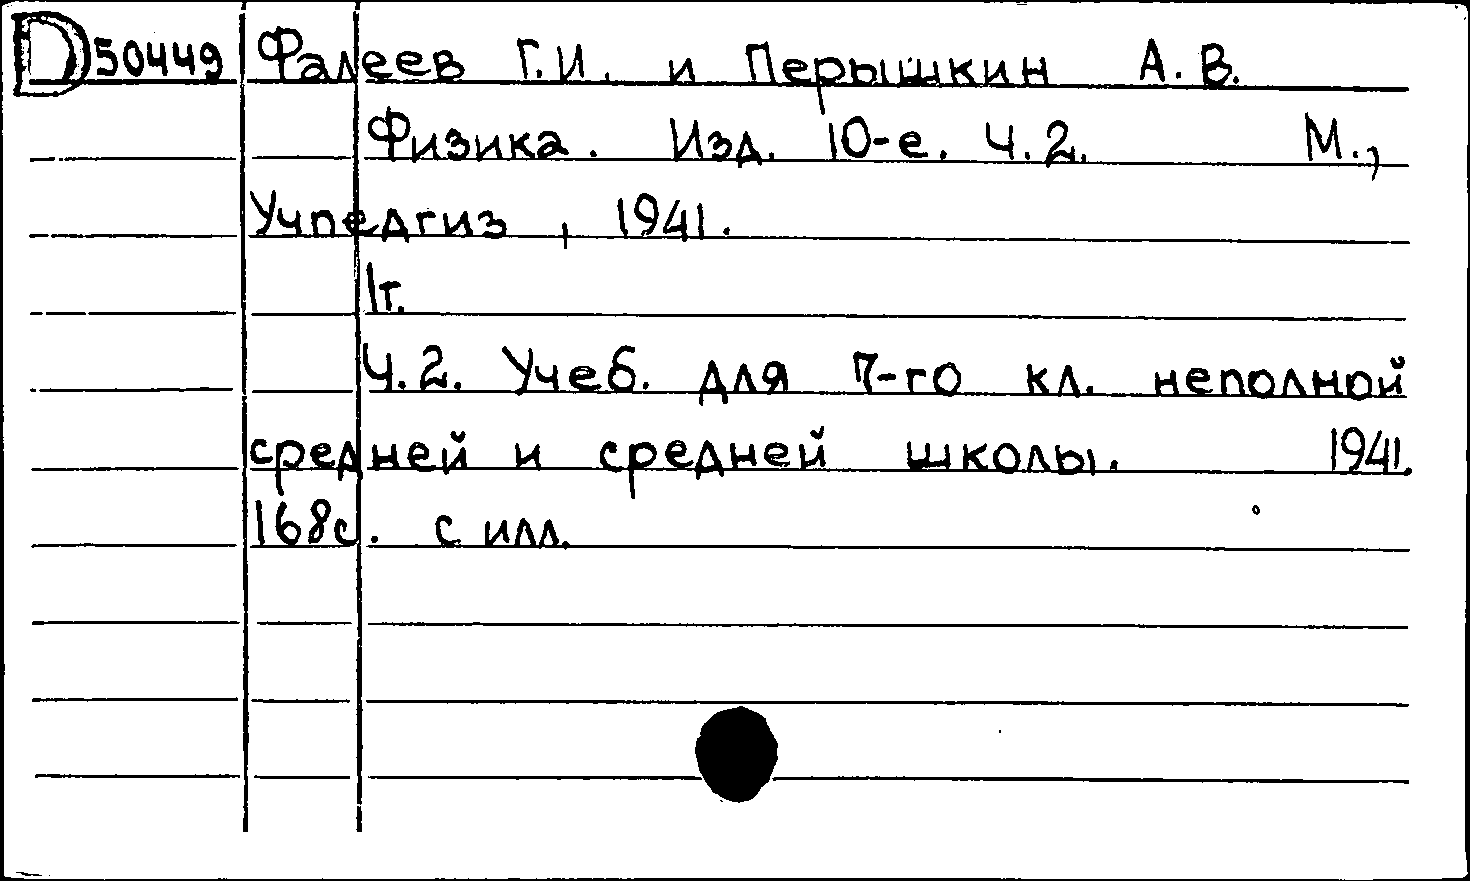 D 50449 Фалеев Г.И. и Перышкин А.В.
Физика. Изд. 10-е. Ч.2. М.,
Учпедгиз, 1941.
1т.
Ч.2. Учеб. для 7-го кл. неполной
средней и средней школы. 1941.
168с. с илл.